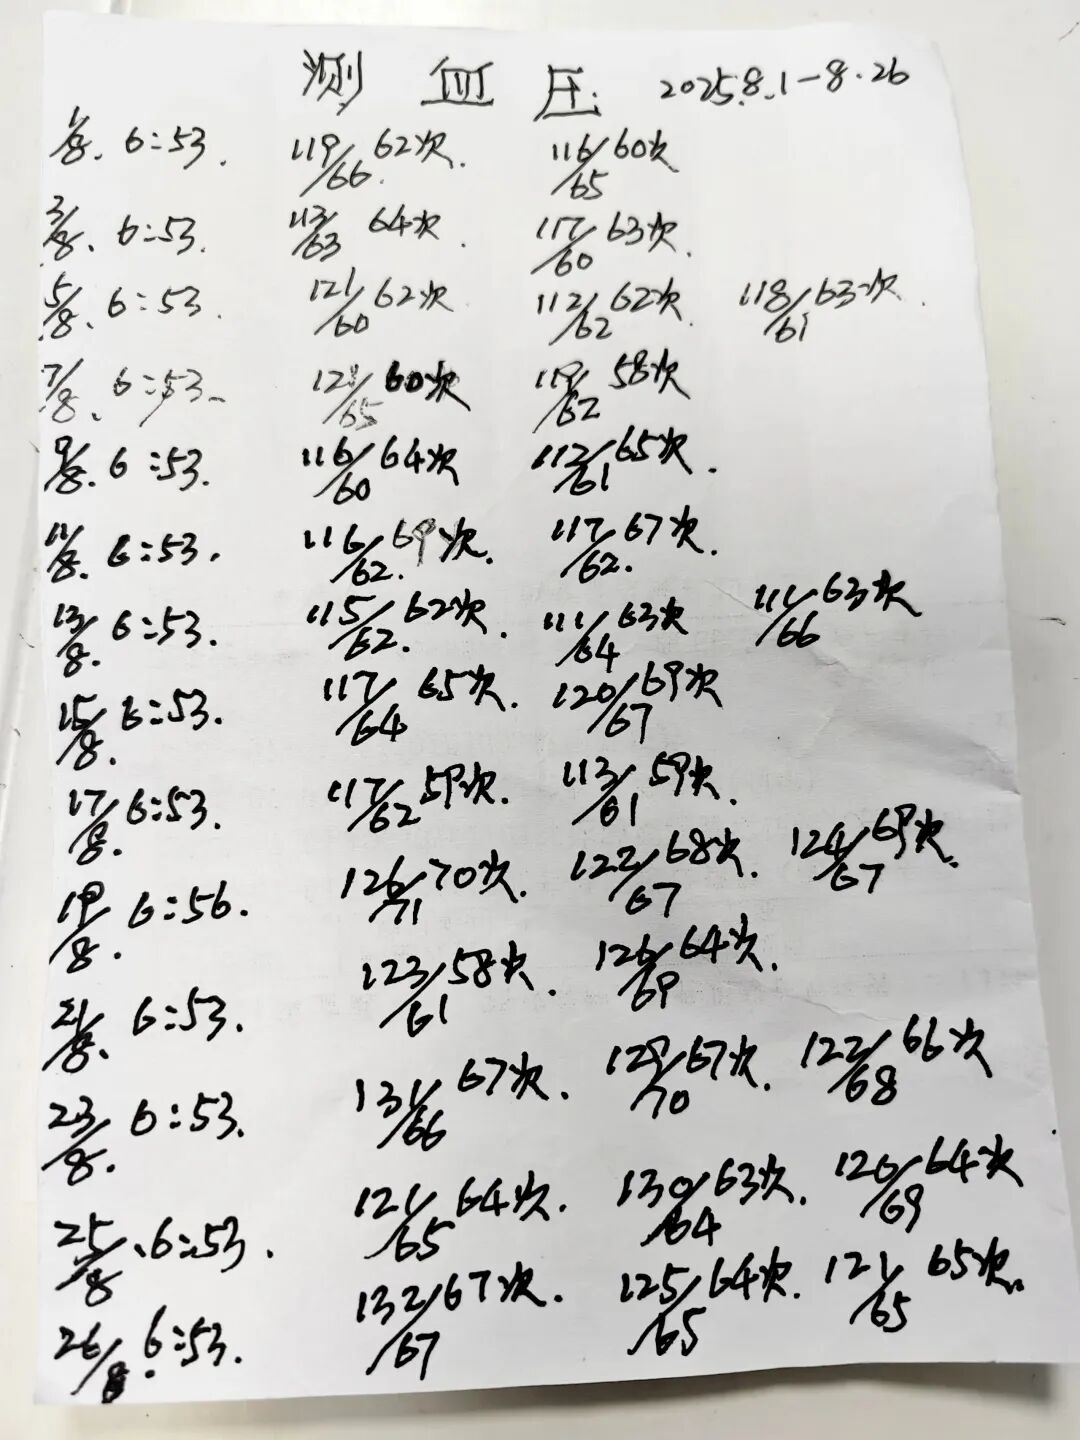 测 血 压. 2025.8.1-8.26
1/8. 6:53. 119/66 62次. 116/65 60次
3/8. 6:53. 113/63 64次. 117/60 63次.
5/8. 6:53. 121/60 62次 112/62 62次. 118/61 63次.
7/8. 6:53. 121/65 60次 119/62 58次
9/8. 6:53. 116/60 64次 112/61 65次.
11/8. 6:53. 116/62. 69次. 117/62. 67次.
13/8. 6:53. 115/62. 62次. 111/64 63次 111/66 63次
15/8. 6:53. 117/64 65次. 120/67 69次
17/8. 6:53. 117/62 59次. 113/61 59次.
19/8. 6:56. 126/71 70次. 122/67 68次. 124/67 69次.
21/8. 6:53. 123/61 58次. 126/69 64次.
23/8. 6:53. 131/66 67次. 129/70 67次. 122/68 66次
25/8. 6:53. 121/65 64次. 130/64 63次. 126/69 64次
26/8. 6:53. 132/67 67次. 125/65 64次. 121/65 65次.